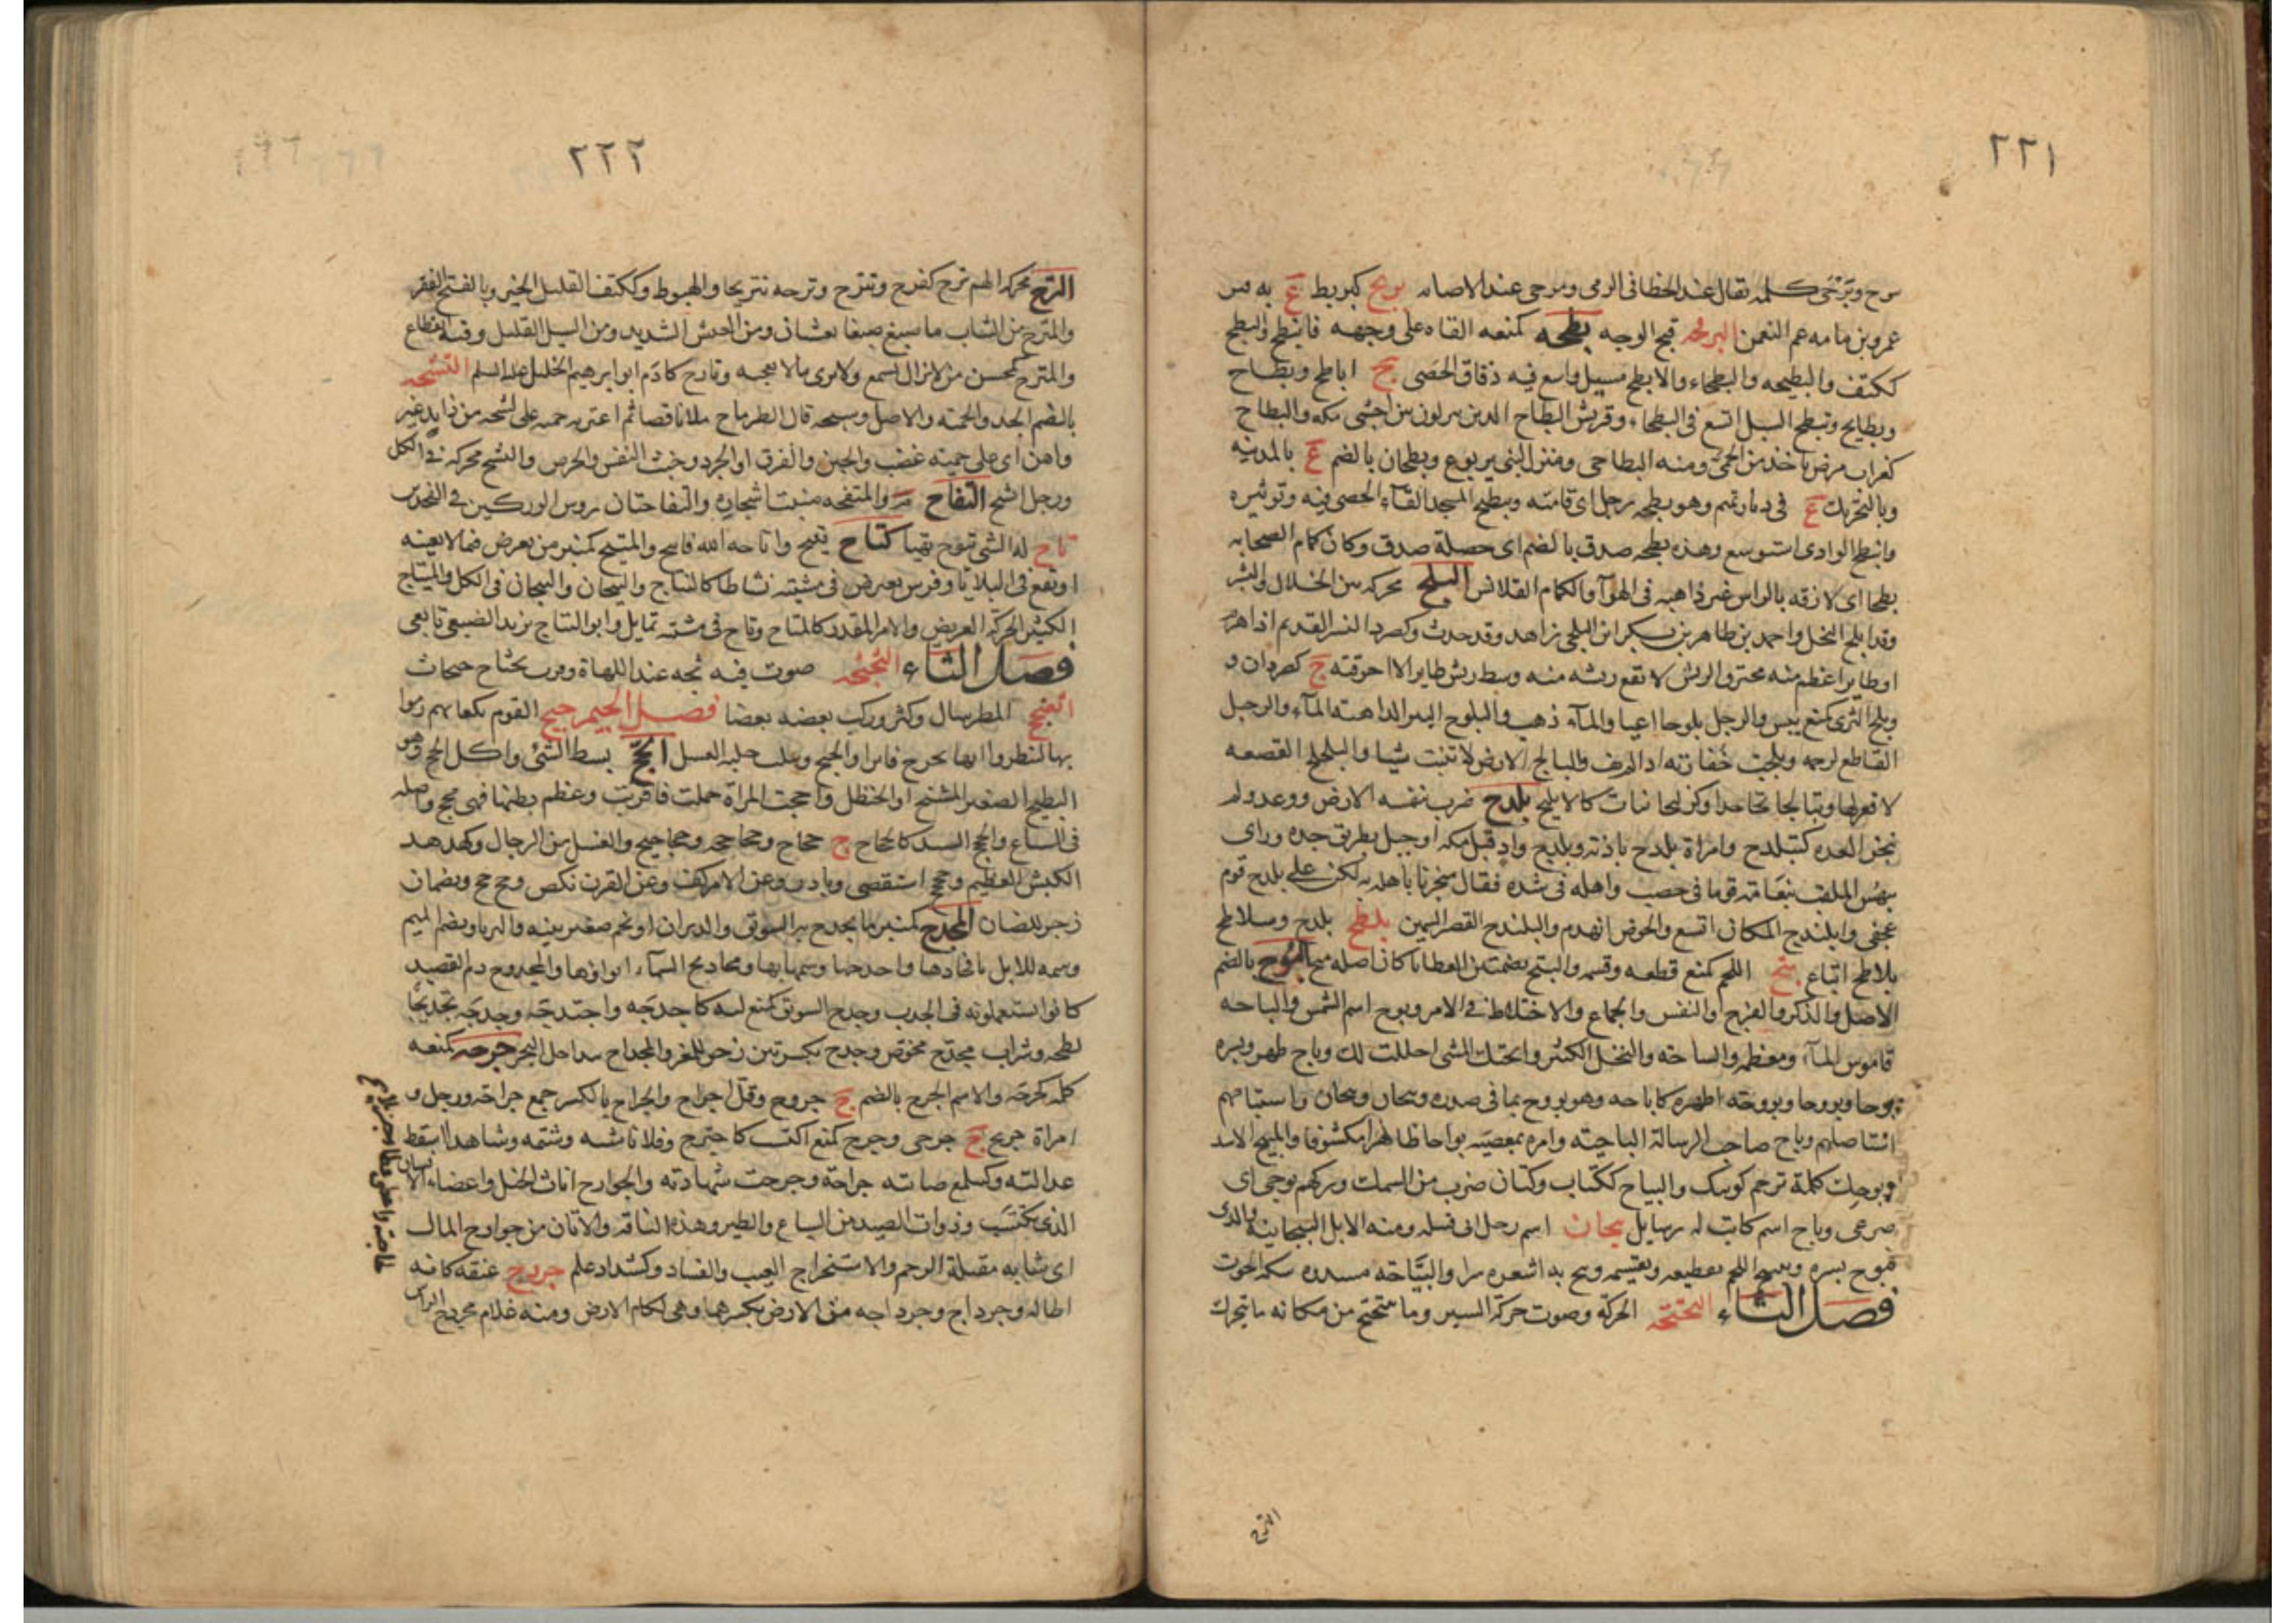 ٢٢١
برح وبَرْحَى كلمه تقال عند الخطا فى الرمى ومرحى عند الاصابه بربح كبربط ع به قبر
عمرو بن مامه عم النعمن البرقحه قبح الوجه بطحه كمنعه القاه على وجهه فانبطح والبطح
ككتف والبطيحه والبطحاء والابطح مسيل واسع فيه دقاق الحصى ج اباطح وبطاح
وبطايح وتبطح السيل اتسع فى البطحاء وقريش البطاح الذين ينزلون بين اخشبى مكه والبطاح
كغراب مرض ياخذ من الحمى ومنه البطاحى ومنزل لبنى يربوع وبطحان بالضم ع بالمدينه
وبالتحريك ع فى ديار تميم وهو بطحه رجل اى قامته وبطح المسجد القآء الحصى فيه وتوثيره
وانبطح الوادى استوسع وهذه بطحه صدق بالضم اى خصلة صدق وكان كمام الصحابه
بطحا اى لازقه بالراس غير ذاهبه فى الهوآء والكمام القلانس البلح محركه بين الخلال والبسر
وقد ابلح النخل واحمد بن طاهر بن بكران البلحى زاهد وقد حدث وكصرد النسر القديم اذا هرم
او طاير اعظم منه محترق الريش لا تقع ريشه منه وسط ريش طاير الا احرقته ج كصردان و
وبلح الثرى كمنع يبس والرجل بلوحا اعيا والمآء ذهب والبلوح البئر الذاهبة المآء والرجل
القاطع لرحمه وبلحت خفارته اذا لم يف والبالح الارض لا تنبت شيا والبلحلح القصعه
لا قعر لها وتبالحا تجاحدا وكزليخا نبات كالابليح بلدح ضرب نفسه الارض ووعد ولم
ينجز العده كتبلدح وامراة بلدح باذنة وبلدح واد قبل مكه او جبل بطريق جده وراى
بيهس الملقب بنعامة قوما فى خصب واهله فى شده فقال متحزنا باهله لكن على بلدح قوم
عجفى وابلندح المكان اتسع والحوض انهدم والبلندح القصير السمين بلطح بلدح وسلاطح
بلاطح اتباع بنح اللحم كمنع قطعه وقسمه والبنح بضمتين العطايا كان اصله منح البوح بالضم
الاصل والذكر والفرج والنفس والجماع والاختلاط فى الامر وبوح اسم الشمس والباحه
قاموس المآء ومعظمه والساحه والنخل الكثير وابحتك الشى احللت لك وباح ظهر وبسره
بوحا وبووحا وبووحة اظهره كاباحه وهو بووح بما فى صدره وبيحان وبيحان واستباحهم
استاصلهم وباح صاحب الرسالة الباحيه وامره بمعصيه بواحا ظاهرا مكشوفا والمبيح الاسد
وبوحك كلمة ترحم كويسك والبياح ككتاب وكتان ضرب من السمك وتركهم بوحى اى
صرعى وباح اسم كاتب له رسايل بيحان اسم رجل ابى قبيله ومنه الابل البيحانيه والذى
يبوح بسره وتبييح اللحم تقطيعه وتقسيمه وبيح به اشعره سرا والبياحه مشدده شبكه الحوت
فصل التاء التحتحه الحركة وصوت حركة السير وما يتتحتح من مكانه ما يتحرك
الترح
٢٢٢
الترح محركه الهم ترح كفرح وتترح وترحه تتريحا والهبوط وككتف القليل الخير وبالفتح الفقر
والمترح من الثياب ما صبغ صبغا مشبعا ومن العيش الشديد ومن السيل القليل وفيه انقطاع
والمترح كمحسن من لا يزال يسمع ولا يرى ما لا يعجبه وتارح كآدم ابو ابرهيم الخليل عليه السلم التشحه
بالضم الجد والحميه والاصل وشحه قال الطرماح ملا نايصا ثم اعترته حميه على تشحه من ذايد غير
واهن اى على حميته غضب والجبن والفرق او الحرد وخبث النفس والحرص والتشح محركه فى الكل
ورجل اتشح التفاح م والمتفحه منبت اشجاره والتفاحتان رءوس الوركين فى الفخذين
تاح له الشى يتوح تهيا كتاح يتيح واتاحه الله فاتيح والمتيح كمنبر من يعرض فيما لا يعنيه
او يقع فى البلايا وفرس يعترض فى مشيته نشاطا كالتياح والتيحان والتيحان فى الكل والمتياح
الكثير الحركة العريض والامر المقدر كالمتاح وتاح فى مشيته تمايل وابو التياح يزيد الضبعى تابعى
فصل الثاء الثحثحه صوت فيه بحه عند اللهاة وقرب ثحثاح حثحاث
اثعنجح المطر سال وكثر وركب بعضه بعضا فصل الجيم جبح القوم بكعابهم رموا
بها لينظروا ايها يخرج فايزا والجبح ويثلث خليه العسل الجح بسط الشئ واكل الجح وهو
البطيخ الصغير المشنج او الحنظل واجحت المراة حملت فاقربت وعظم بطنها فهى مجح واصله
فى السباع والجحجح السيد كالجحجاح ج جحاجح وجحاجحه وجحاجيح والفسل من الرجال وكهدهد
الكبش العظيم وجحجح استقصى وبادر وعن الامر كف وعن القرن نكص وجح جح ويضمان
زجر للضان المجدح كمنبر ما يجدح به السويق والدبران او نجم صغير بينه والثريا ويضم الميم
وسمه للابل بافخاذها واجدحها وسمها بها ومجاديح السماء انواؤها والمجدوح دم الفصيد
كانوا يستعملونه فى الجدب وجدح السويق كمنع لته كاجدحه واجتدحه وجدحه تجديحا
لطخه وشراب مجدح مخوض وجدح بكسرتين زجر للمعز والمجداح ساحل البحر جرحه كمنعه
كلمه كجرحه والاسم الجرح بالضم ج جروح وقل اجراح والجراح بالكسر جمع جراحة ورجل و
امراة جريح ج جرحى وجرح كمنع اكتسب كاجترح وفلانا سبه وشتمه وشاهدا اسقط
عدالته وكسمع اصابته جراحة وجرحت شهادته والجوارح اناث الخيل واعضاء الانسان
الذى يكتسب وذوات الصيد من السباع والطير وهذه الناقه والاتان من جوارح المال
اى شابه مقبلة الرحم والاستخراج العيب والفساد وكشداد علم جردح عنقه كانه
اطاله وجرداح وجرداحه من الارض بكسرهما وهى اكام الارض ومنه غلام مجردح الراس